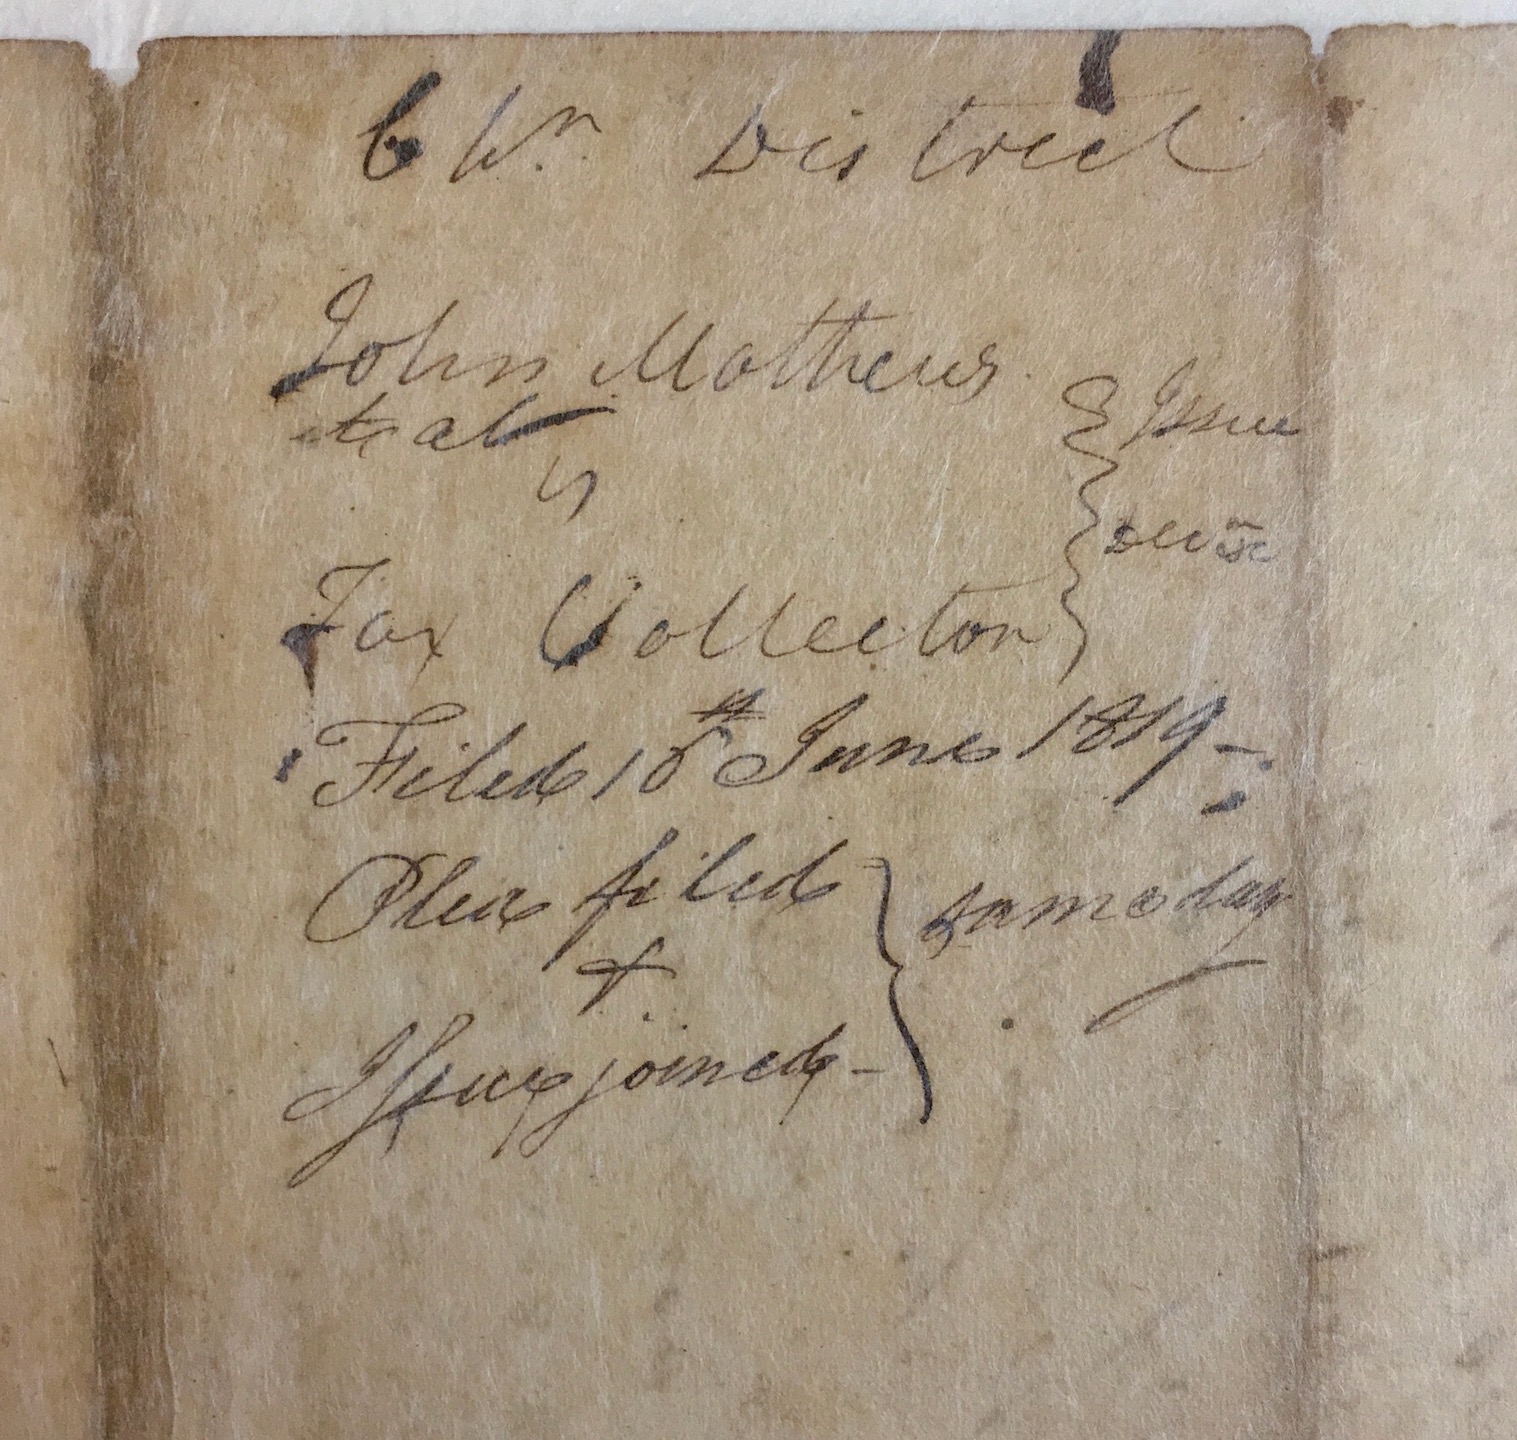 Chn District
John Mathews
et al
vs
Issue
Devise
Tax Collector
Filed 10th June 1819 -
Plea filed
&
Issue joined -
same day